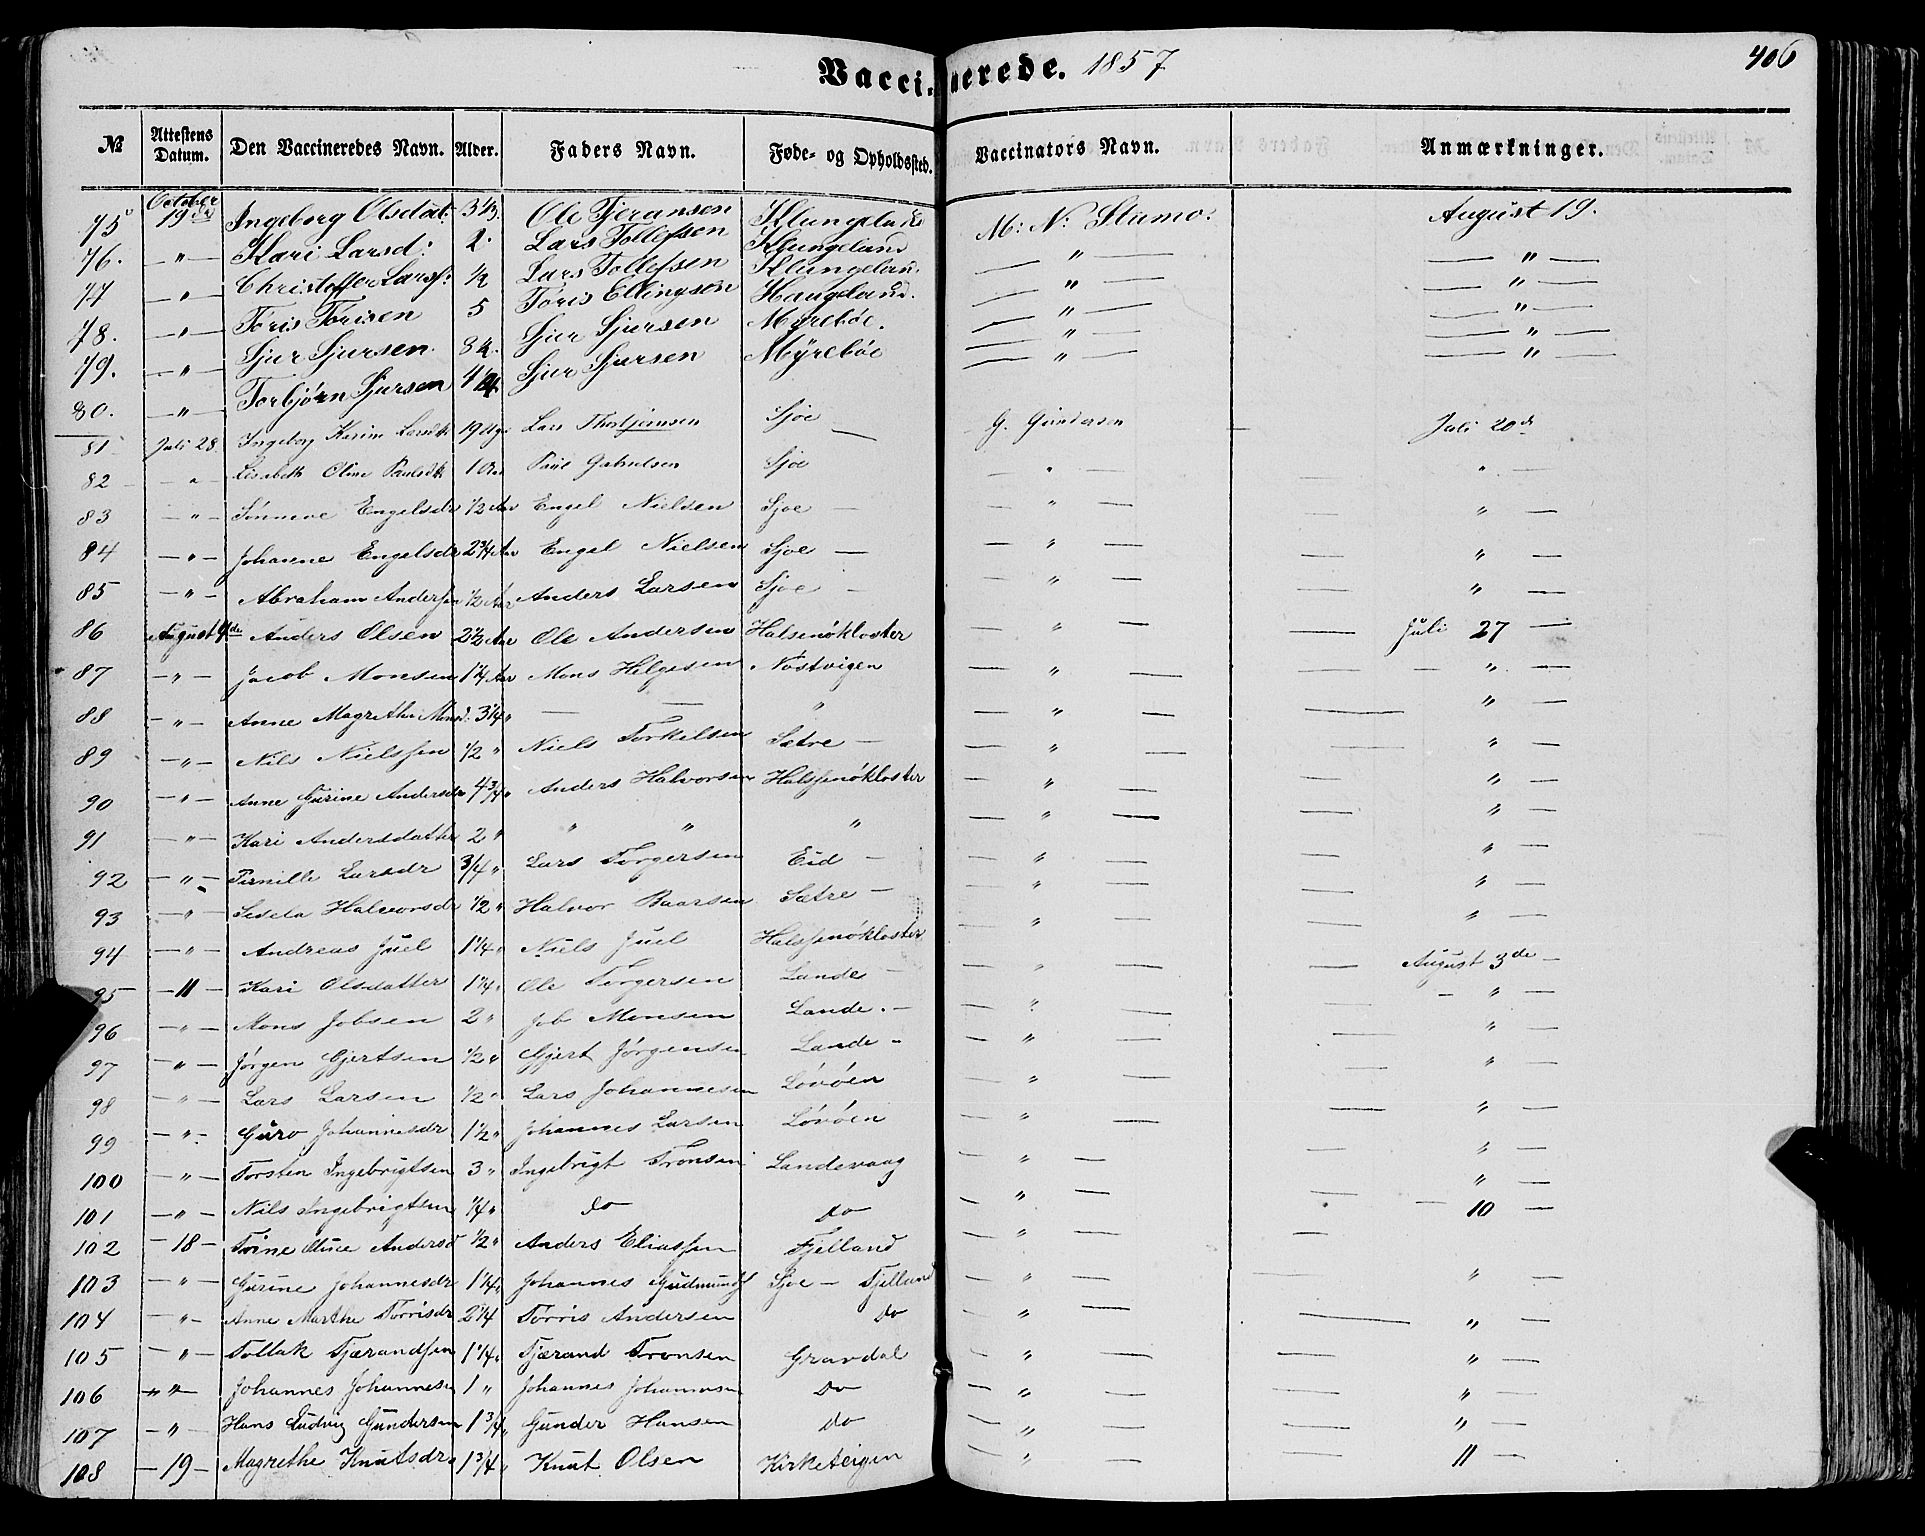 Vaccinerede. 1857
406
№ Attestens Datum. Den Vaccineredes Navn. Alder. Faders Navn. Føde- og Opholdssted. Vaccinators Navn. Anmærkninger.
75 October 19de Ingeborg Olsdat: 3½ Ole Tjeransen Klungeland M: N: Stumo: August 19.
76. — " — Kari Larsd: 2. Lars Tollefsen Klungeland — " — — " —
77 — " — Christoffer Larss: ½ Lars Tollefsen Klungelan. — " — — " —
78. — " — Toris Torisen 5 Toris Ellingsen Haugeland. — " — — " —
79. — " — Sjur Sjursen. 8½. Sjur Sjursen Myrebøe. — " — — " —
80. — " — Torbjørn Sjursen 4 Sjur Sjursen Myrebøe — " — — " —
81 Juli 28 Ingeborg Karine Larsdtr 19 Uger Lars Thorbjørnsen Sjoe — G. Gundersen — Juli 20de
82 — " — Lisabeth Oline Paulsdtr 1 Aar Paul Gabrielsen Sjoe — " — — " —
83 — " — Sønneve Engelsdr ½ Aar Engel Nielsen Sjoe — — " — — " —
84 — " — Johanne Engelsdr 2¾ Aar Engel Nielsen Sjoe — — " — — " —
85 — " — Abraham Andersen ½ Aar Anders Larsen Sjoe — — " — — " —
86 August 4de Anders Olsen 2½ Aar Ole Andersen Halsenökloster — " — — Juli 27 —
87 — " — Jacob Monsen 1¼ Aar Mons Helgesen Nøstvigen — " — — " —
88 — " — Anne Magrethe Monsd. 3¼ " — — " — " — — " —
89 — " — Nils Nielssen ½ " Niels Torkelsen Sætre — — " — — " —
90 — " — Anne Gurine Andersdr 4¾ " Anders Halvorsen Halssenökloster — " — — " —
91 — " — Kari Andersdatter 2 " " " " — " — — " —
92 — " — Pernille Larsdr ¾ " Lars Torgersen Eid — — " — — " —
93 — " — Sesela Halvorsdr ½ " Halvor Baarsen Sætre — — " — — " —
94 — " — Andreas Juel 1¼ " Niels Juel Halssenökloster — " — — " —
95 — 11 — Kari Olsdatter 1¼ " Ole Torgersen Lande — — " — — August 3de —
96 — " — Mons Jobsen 2 " Job Monsen Lande. — — " — — " —
97 — " — Jørgen Gjertsen ½ " Gjert Jørgensen Lande " — " — — " —
98 — " — Lars Larsen ½ " Lars Johannesen Lövöen — " — — " —
99 — " — Guro Johannesdr 1½ " Johannes Larsen Lövöen — " — — " —
100 — " — Torsten Ingebrigtsen 3 " Ingebrigt Tronsen Landevaag — " — — " —
101 — " — Nils Ingebrigtsen ¼ " do do — " — — " —
102 — 18 — Trine Oline Andersd ½ " Anders Eliassen Fjelland — " — — 10 —
103 — " — Gurine Johannesdr 1¼ " Johannes Gudmunds Sjoe — Fjelland — " — — " —
104 — " — Anne Marthe Torrisdr 2¼ Torris Andersen do — " — — " —
105 — " — Tollak Tjærandsen 1¼ " Tjærand Tronsen Gravdal — " — — " —
106 — " — Johannes Johannesen 1 " Johannes Johannesen do — " — — " —
107 — " — Hans Ludvig Gundersen 1¾ " Gunder Hansen do — " — — " —
108 — 19 — Magrethe Knutsdr 1¾ " Knut Olsen Kirketeigen — " — — 11 —